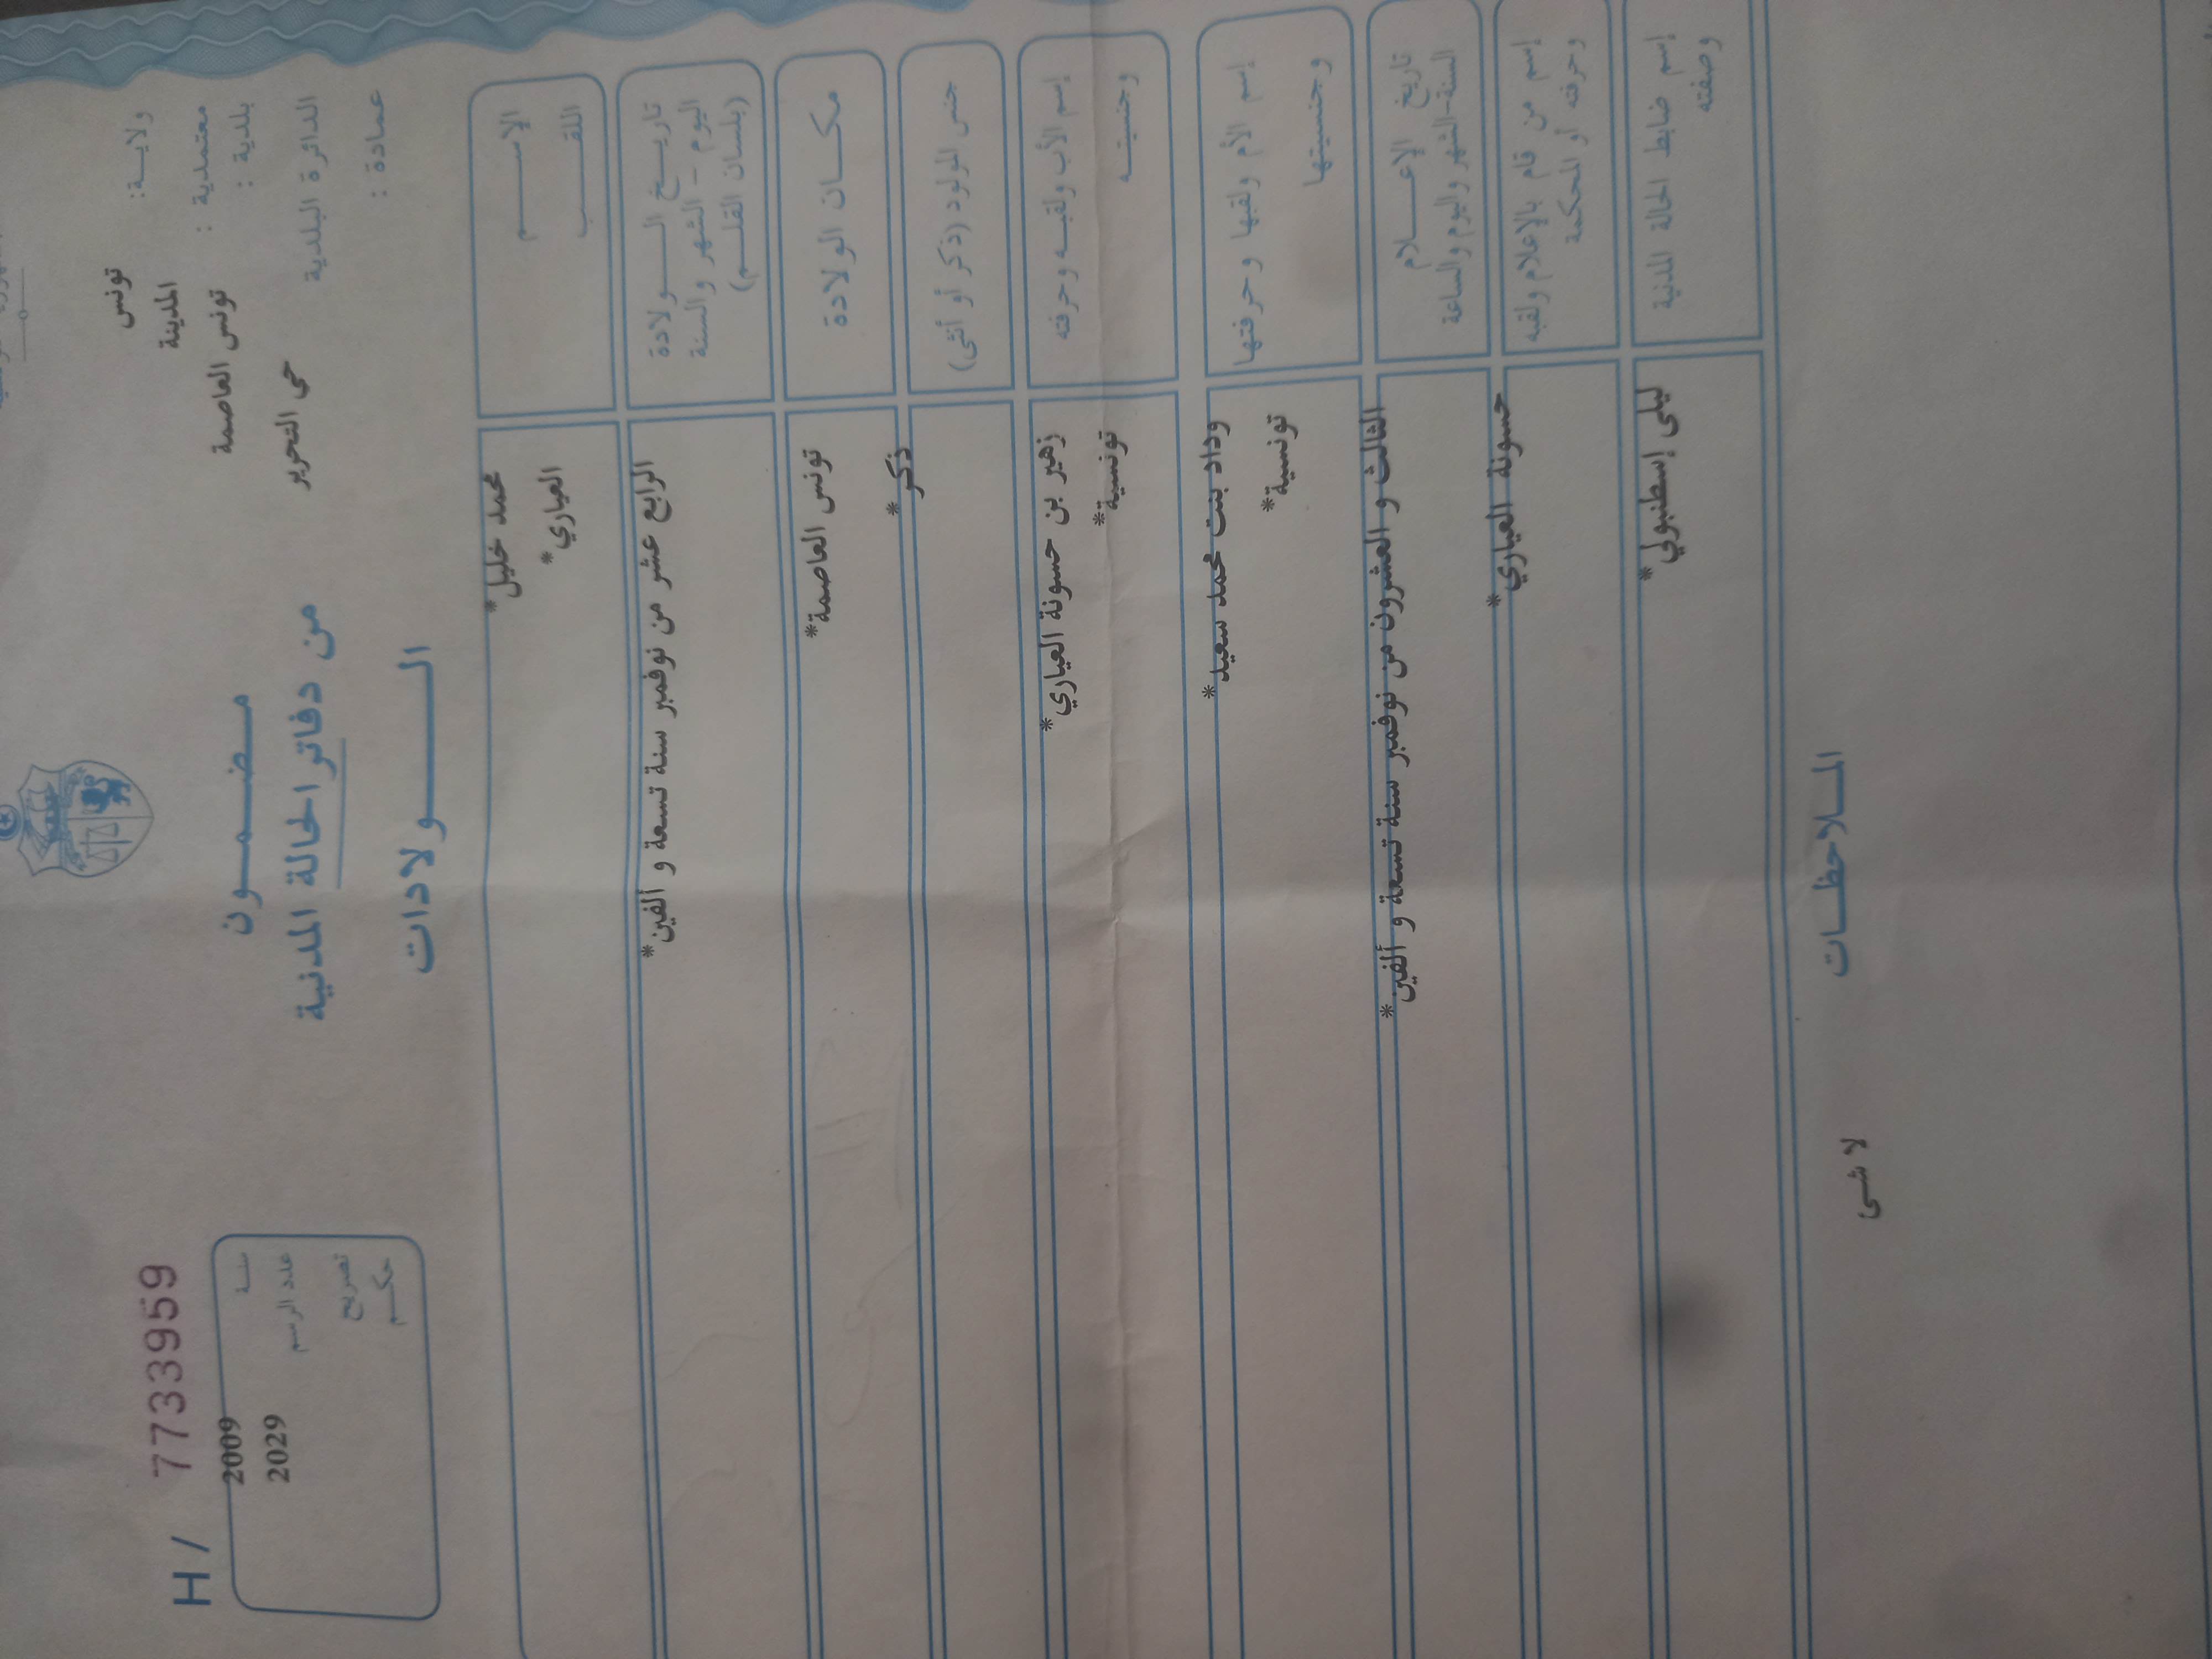 ولايـــة: تونس
معتمدية : المدينة
بلدية : تونس العاصمة
الدائرة البلدية حي التحرير
عمادة :
H / 7733959
سنة 2009
عدد الرسم 2029
تصريح
حكم
مضمون
من دفاتر الحالة المدنية
الــولادات
الإســـم محمد خليل*
اللقــب العياري*
تاريــخ الــولادة
اليوم – الشهر والسنة
(بلسان القلـم)
الرابع عشر من نوفمبر سنة تسعة و ألفين*
مكــان الولادة تونس العاصمة*
جنس المولود (ذكر أو أنثى) ذكر*
إسم الأب ولقبـه وحرفته زهير بن حسونة العياري*
وجنسيتـه تونسية*
إسم الأم ولقبها وحرفتها وداد بنت محمد سعيد*
وجنسيتها تونسية*
تاريخ الإعــلام
السنة-الشهر واليوم والساعة
الثالث و العشرون من نوفمبر سنة تسعة و ألفين*
إسم من قام بالإعلام ولقبه
وحرفته أو المحكمة
حسونة العياري*
إسم ضابط الحالة المدنية
وصفته
ليلى إسطنبولي*
المـلاحظـات
لا شىء